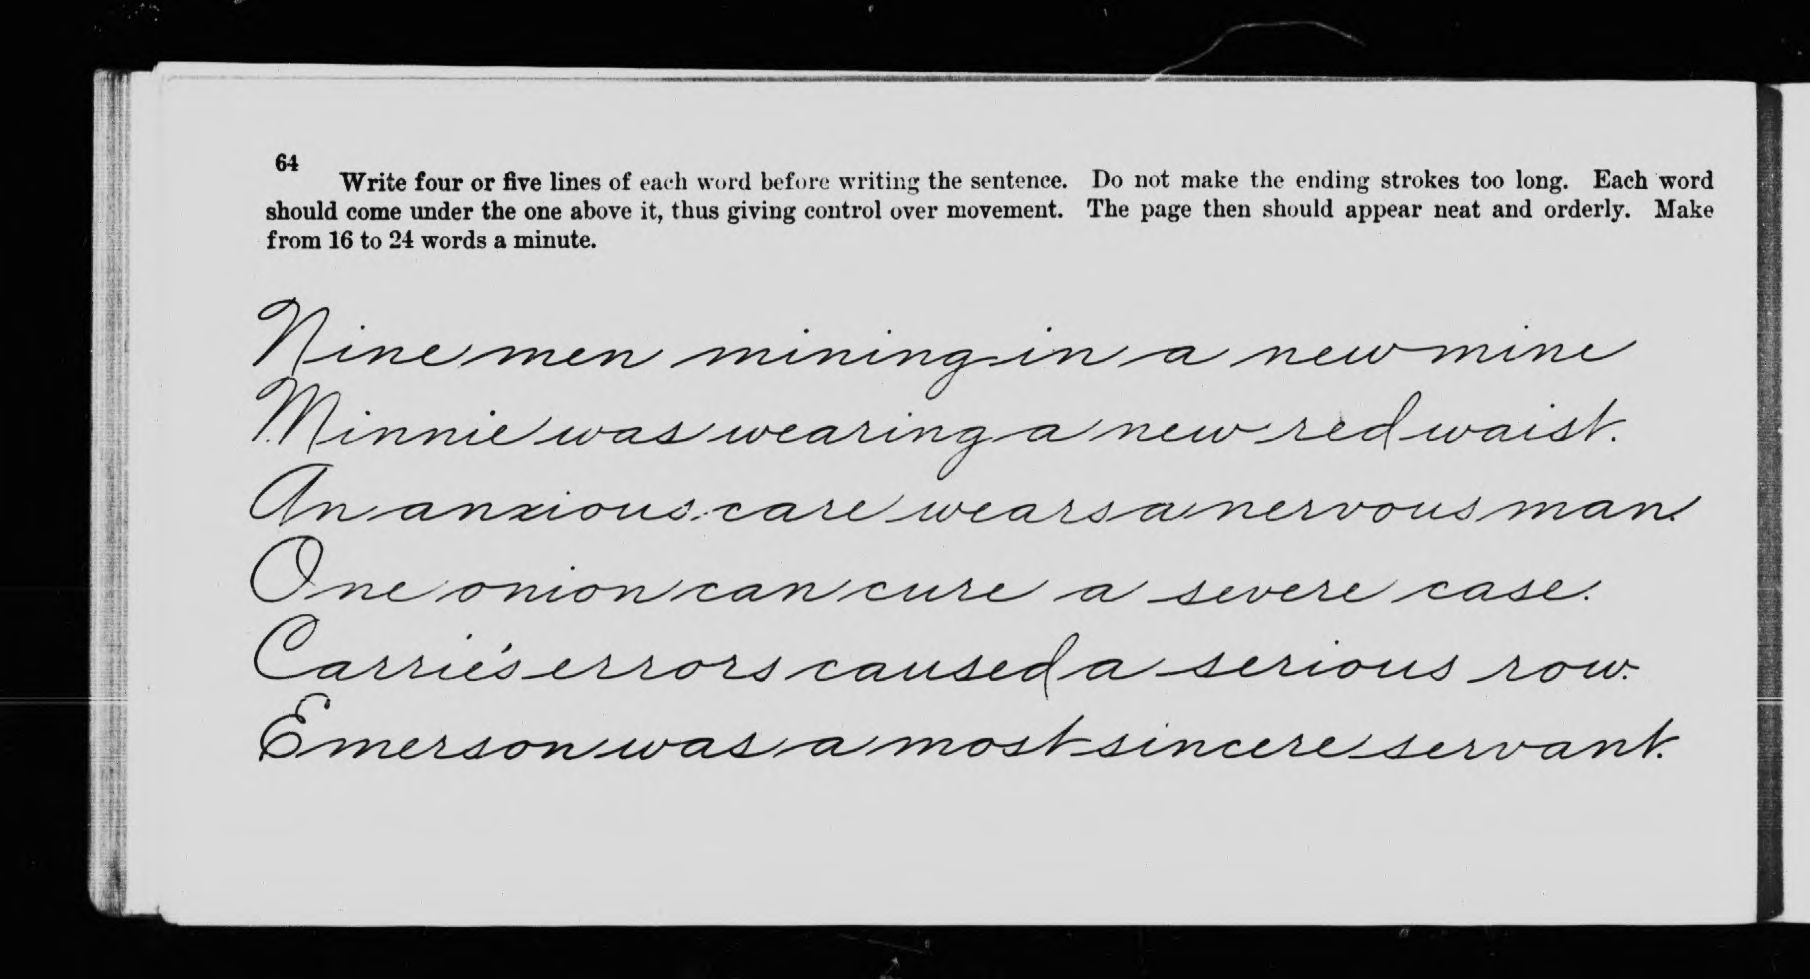 64
Write four or five lines of each word before writing the sentence. Do not make the ending strokes too long. Each word
should come under the one above it, thus giving control over movement. The page then should appear neat and orderly. Make
from 16 to 24 words a minute.
Nine men mining in a new mine
Minnie was wearing a new red waist.
An anxious care wears a nervous man.
One onion can cure a severe case.
Carrie's errors caused a serious row.
Emerson was a most sincere servant.